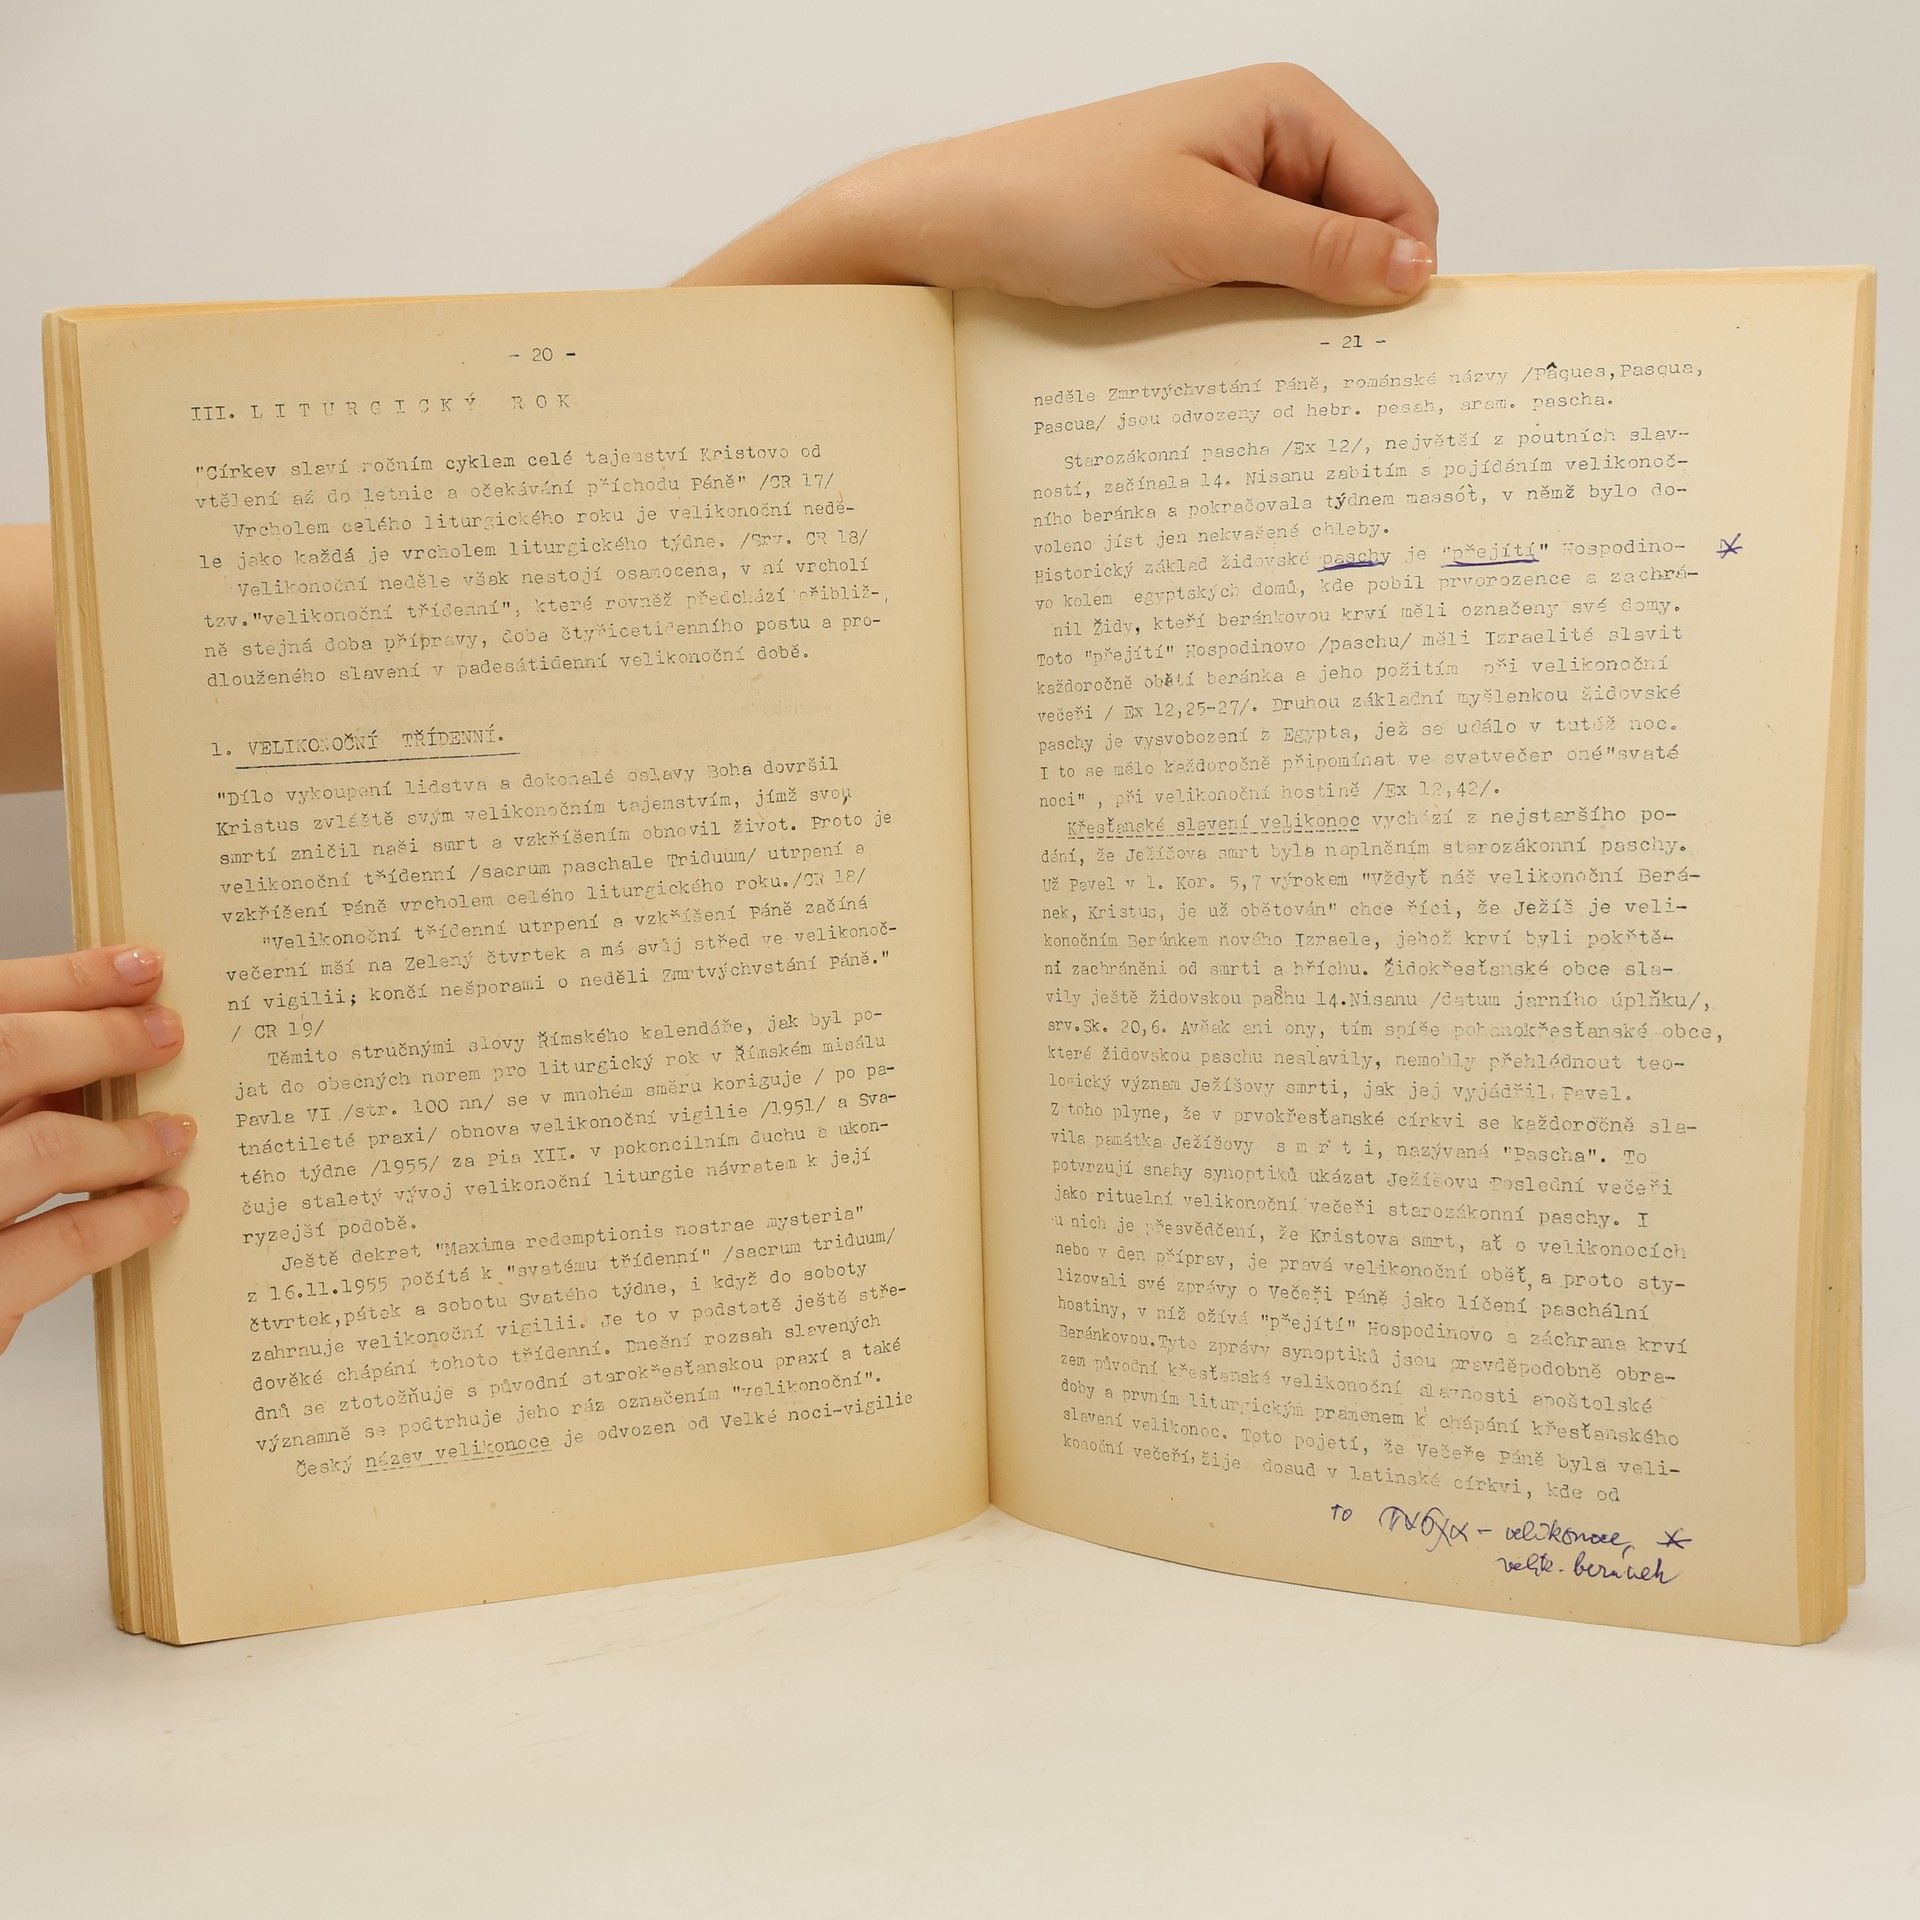 - 20 -
III. LITURGICKÝ ROK
"Církev slaví ročním cyklem celé tajemství Kristovo od
vtělení až do letnic a očekávání příchodu Páně" /CR 17/
Vrcholem celého liturgického roku je velikonoční nedě-
le jako každá je vrcholem liturgického týdne. /Srv. CR 18/
Velikonoční neděle však nestojí osamocena, v ní vrcholí
tzv."velikonoční třídenní", které rovněž předchází přibliž-
ně stejná doba přípravy, doba čtyřicetidenního postu a pro-
dlouženého slavení v padesátidenní velikonoční době.
1. VELIKONOČNÍ TŘÍDENNÍ.
"Dílo vykoupení lidstva a dokonalé oslavy Boha dovršil
Kristus zvláště svým velikonočním tajemstvím, jímž svou
smrtí zničil naši smrt a vzkříšením obnovil život. Proto je
velikonoční třídenní /sacrum paschale Triduum/ utrpení a
vzkříšení Páně vrcholem celého liturgického roku./CR 18/
"Velikonoční třídenní utrpení a vzkříšení Páně začíná
večerní mší na Zelený čtvrtek a má svůj střed ve velikonoč-
ní vigilii; končí nešporami o neděli Zmrtvýchvstání Páně."
/ CR 19/
Těmito stručnými slovy Římského kalendáře, jak byl po-
jat do obecných norem pro liturgický rok v Římském misálu
Pavla VI /str. 100 nn/ se v mnohém směru koriguje / po pa-
tnáctileté praxi/ obnova velikonoční vigilie /1951/ a Sva-
tého týdne /1955/ za Pia XII. v pokoncilním duchu a ukon-
čuje staletý vývoj velikonoční liturgie návratem k její
ryzejší podobě.
Ještě dekret "Maxima redemptionis nostrae mysteria"
z 16.11.1955 počítá k "svatému třídenní" /sacrum triduum/
čtvrtek,pátek a sobotu Svatého týdne, i když do soboty
zahrnuje velikonoční vigilii. Je to v podstatě ještě stře-
dověké chápání tohoto třídenní. Dnešní rozsah slavených
dnů se ztotožňuje s původní starokřesťanskou praxí a také
významně se podtrhuje jeho ráz označením "velikonoční".
Český název velikonoce je odvozen od Velké noci-vigilie
- 21 -
neděle Zmrtvýchvstání Páně, románské názvy /Pâques,Pasqua,
Pascua/ jsou odvozeny od hebr. pesah, aram. pascha.
Starozákonní pascha /Ex 12/, největší z poutních slav-
ností, začínala 14. Nisanu zabitím a pojídáním velikonoč-
ního beránka a pokračovala týdnem massót, v němž bylo do-
voleno jíst jen nekvašené chleby.
Historický základ židovské paschy je "přejítí" Hospodino-
vo kolem egyptských domů, kde pobil prvorozence a zachrá-
nil Židy, kteří beránkovou krví měli označeny své domy.
Toto "přejítí" Hospodinovo /paschu/ měli Izraelité slavit
každoročně obětí beránka a jeho požitím při velikonoční
večeři / Ex 12,25-27/. Druhou základní myšlenkou židovské
paschy je vysvobození z Egypta, jež se událo v tutéž noc.
I to se mělo každoročně připomínat ve svatvečer oné"svaté
noci" , při velikonoční hostině /Ex 12,42/.
Křesťanské slavení velikonoc vychází z nejstaršího po-
dání, že Ježíšova smrt byla naplněním starozákonní paschy.
Už Pavel v 1. Kor. 5,7 výrokem "Vždyť náš velikonoční Berá-
nek, Kristus, je už obětován" chce říci, že Ježíš je veli-
konočním Beránkem nového Izraele, jehož krví byli pokřtě-
ní zachráněni od smrti a hříchu. Židokřesťanské obce sla-
vily ještě židovskou paschu 14.Nisanu /datum jarního úplňku/,
srv.Sk. 20,6. Avšak ani ony, tím spíše pohanokřesťanské obce,
které židovskou paschu neslavily, nemohly přehlédnout teo-
logický význam Ježíšovy smrti, jak jej vyjádřil Pavel.
Z toho plyne, že v prvokřesťanské církvi se každoročně sla-
vila památka Ježíšovy s m r t i, nazývaná "Pascha". To
potvrzují snahy synoptiků ukázat Ježíšovu Poslední večeři
jako rituelní velikonoční večeři starozákonní paschy. I
u nich je přesvědčení, že Kristova smrt, ať o velikonocích
nebo v den příprav, je pravá velikonoční oběť, a proto sty-
lizovali své zprávy o Večeři Páně jako líčení paschální
hostiny, v níž ožívá "přejítí" Hospodinovo a záchrana krví
Beránkovou.Tyto zprávy synoptiků jsou pravděpodobně obra-
zem původní křesťanské velikonoční slavnosti apoštolské
doby a prvním liturgickým pramenem k chápání křesťanského
slavení velikonoc. Toto pojetí, že Večeře Páně byla veli-
konoční večeří, žije dosud v latinské církvi, kde od
to - velikonoce,
velik. beránek